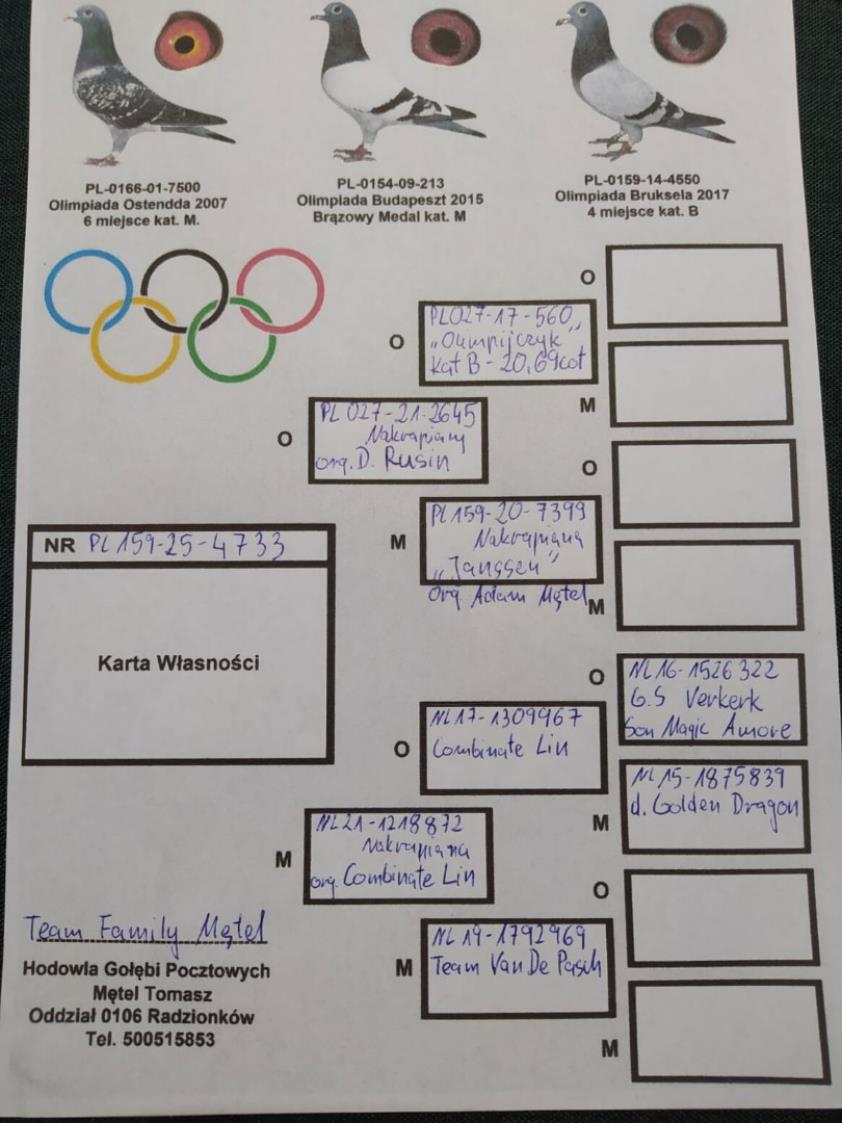 PL-0166-01-7500
Olimpiada Ostendda 2007
6 miejsce kat. M.
PL-0154-09-213
Olimpiada Budapeszt 2015
Brązowy Medal kat. M
PL-0159-14-4550
Olimpiada Bruksela 2017
4 miejsce kat. B
O
O
PL027-17-560
„Olimpijczyk"
Kat B - 20,69cot
M
O
PL 027-21-2645
Nakrapiany
org. D. Rusin
O
M
PL 159-20-7399
Nakrapiana
„Janssen"
Org. Adam Mętel
M
NR PL 159-25-4733
Karta Własności
O
NL16-1526322
G.S Verkerk
Son Magic Amore
O
NL17-1309967
Combinate Lin
M
NL15-1875839
d. Golden Dragon
M
NL21-1218872
Nakrapiana
org. Combinate Lin
O
M
NL 19-1792969
Team Van De Pasch
M
Team Family Mętel
Hodowla Gołębi Pocztowych
Mętel Tomasz
Oddział 0106 Radzionków
Tel. 500515853